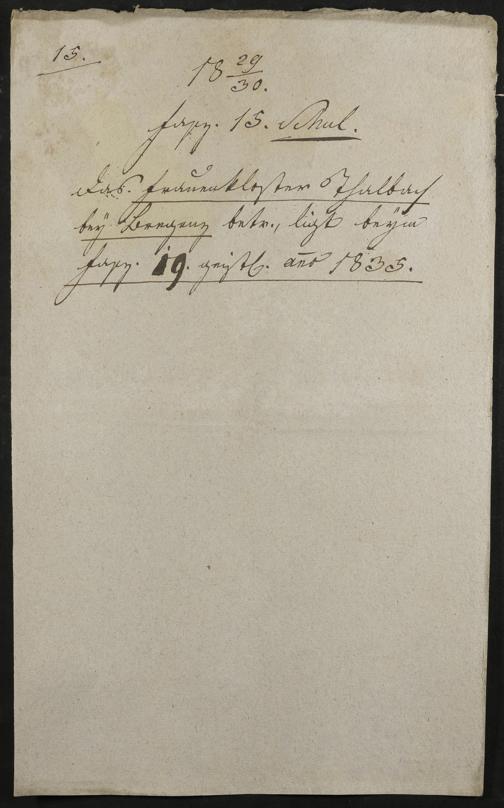 15.
18 29/30.
fasz. 15. Schul.
Das Frauenkloster Thalbach
bey Bregenz betr., ligt beym
fasz. 19. geistl. ano 1835.